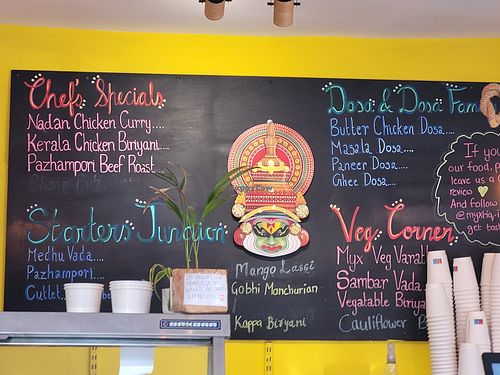 Chef's Specials
Nadan Chicken Curry....
Kerala Chicken Biriyani....
Pazhampori Beef Roast....
Starters Junction
Medhu Vada....
Pazhampori....
Cutlet
Mango Lassi
Gobhi Manchurian
Kappa Biryani
Dosa & Dosa Fam
Butter Chicken Dosa....
Masala Dosa....
Paneer Dosa....
Ghee Dosa....
Veg Corner
Myx Veg Varatt
Sambar Vada
Vegatable Biriya
Cauliflower
If you
our food, p
leave us a G
review
And follow
@myxtiq
get tast